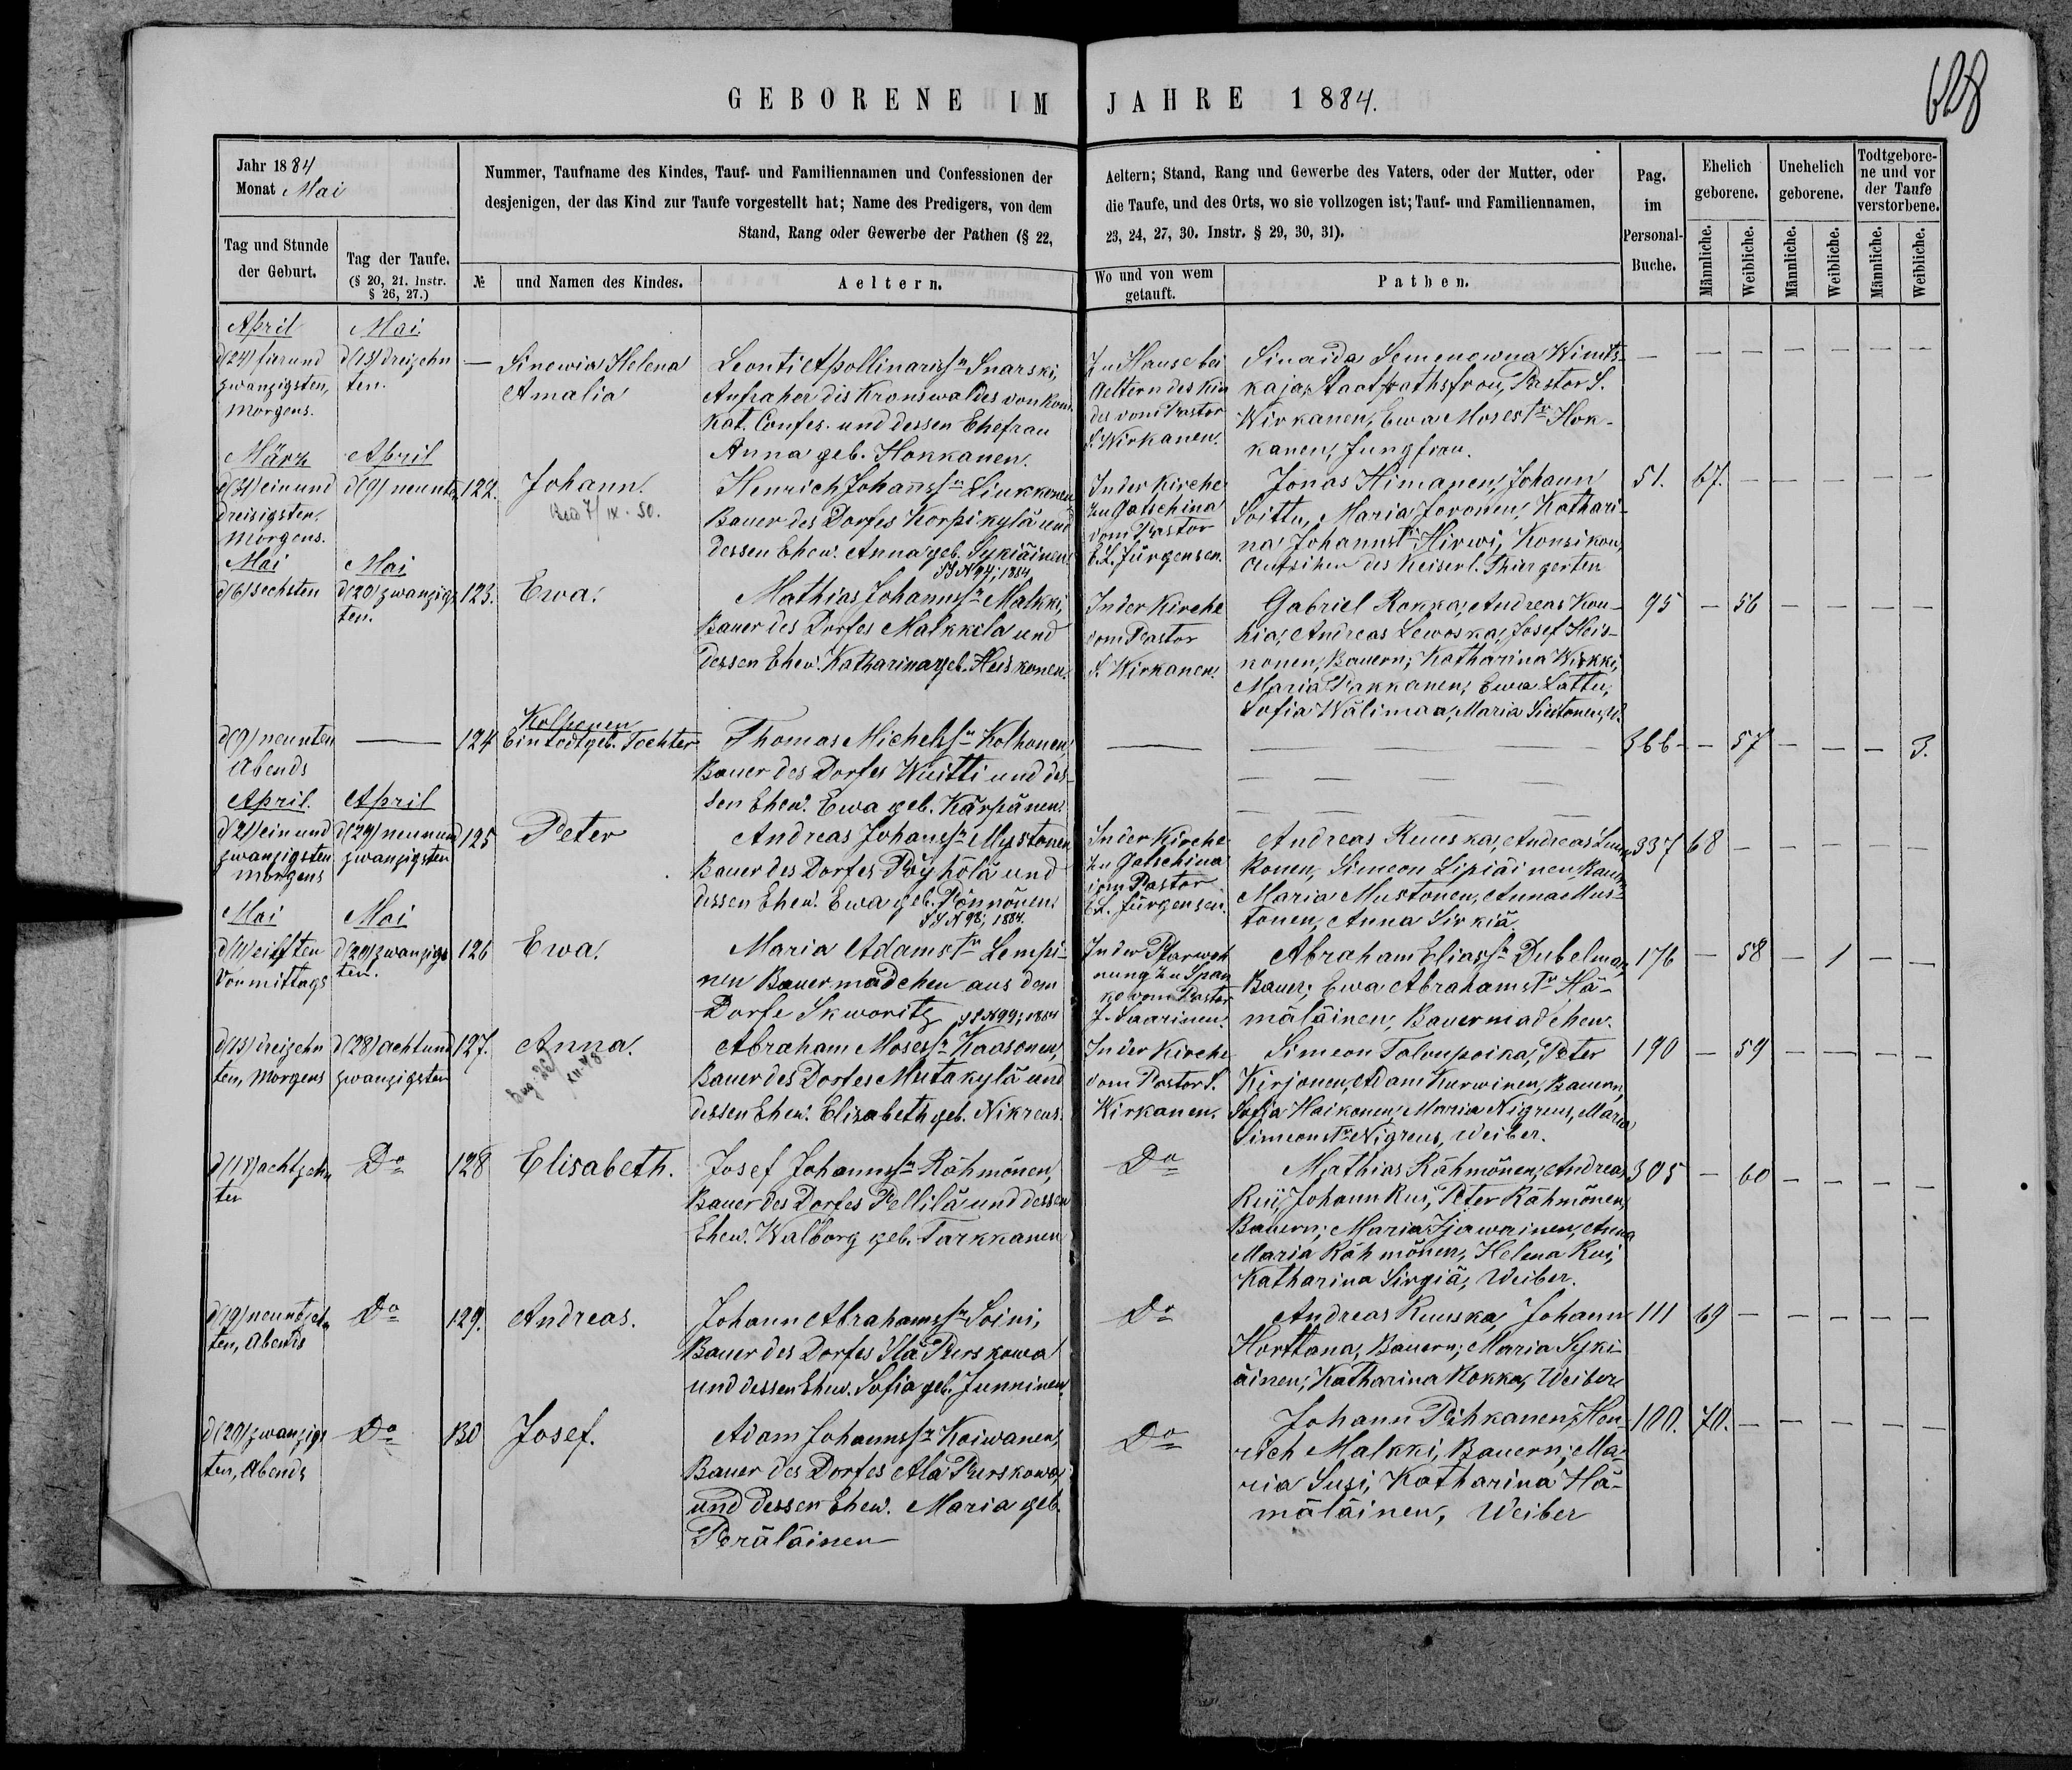 GEBORENE IM JAHRE 1884.
628
Jahr 1884
Monat Mai
Nummer, Taufname des Kindes, Tauf- und Familiennamen und Confessionen der
desjenigen, der das Kind zur Taufe vorgestellt hat; Name des Predigers, von dem
Stand, Rang oder Gewerbe der Pathen (§ 22,
Aeltern; Stand, Rang und Gewerbe des Vaters, oder der Mutter, oder
die Taufe, und des Orts, wo sie vollzogen ist; Tauf- und Familiennamen,
23, 24, 27, 30. Instr. § 29, 30, 31).
Pag.
im
Personal-
Buche.
Ehelich
geborene.
Unehelich
geborene.
Todtgebore-
ne und vor
der Taufe
verstorbene.
Tag und Stunde
der Geburt.
Tag der Taufe.
(§ 20, 21. Instr.
§ 26, 27.)
№
und Namen des Kindes.
Aeltern.
Wo und von wem
getauft.
Pathen.
Männliche.
Weibliche.
Männliche.
Weibliche.
Männliche.
Weibliche.
April
d(24) fierund
zwanzigsten,
Morgens.
Mai
d(13) dreizehn
ten.
—
Sinewia Helena
Amalia
Leonti Apollinarissn Snarski,
Aufseher des Kronswaldes von Rom.
Kat. Confes. und dessen Ehefrau
Anna geb. Hokkanen.
Zu Hause bei
Aeltern des Kin
des vom Pastor
S. Wirkanen.
Sinaida Semenowna Winits-
kaja, Staatsrathsfrau, Pastor S.
Wirkanen, Ewa Mosestr Hok-
kanen, Jungfrau.
— — — — — — —
März
d(31) ein und
dreisigsten,
Morgens.
April
d(9) neunten
122.
Johann.
7/IX. 50.
Henrich Johannssn Liukkonen,
Bauer des Dorfes Korpikylä und
dessen Ehew. Anna geb. Sykiäinen.
SS N 97; 1884
In der Kirche
zu Gatschina
vom Pastor
E. L. Jürgensen.
Jonas Himanen, Johann
Soittu, Maria Joronen, Kathari-
na Johannstr Hirwi, Konsikow,
Aufsiher des Keiserl. Thiergerten
51. 67. — — — — —
Mai
d(6) sechsten
Mai
d(20) zwanzigs
ten.
123.
Ewa.
Mathias Johannssn Malkki,
Bauer des Dorfes Malkkila und
dessen Ehew. Katharina geb. Heiskonen.
In der Kirche
vom Pastor
S. Wirkanen.
Gabriel Rokka, Andreas Kou-
hia, Andreas Lewoska, Josef Heis-
nonen, Bauern; Katharina Wirkki,
Maria Pakkanen, Ewa Lattu,
Sofia Wälimaa, Maria Siestonen, W.
95 — 56 — — — —
d(9) neunten
Abends
—
124
Kolhonen
Ein todtgeb. Tochter
Thomas Michelssn Kolhonen,
Bauer des Dorfes Wuitti und des-
sen Ehew. Ewa geb. Kärpänen.
— — — —
366 — 57 — — — 3.
April.
d(21) ein und
zwanzigsten
Morgens
April
d(29) neunund
zwanzigsten
125
Peter
Andreas Johanssn Mustonen
Bauer des Dorfes Pöyhölä und
dessen Ehew. Ewa geb. Pönnönen.
SS N 98; 1884.
In der Kirche
zu Gatschina
vom Pastor
E. L. Jürgensen.
Andreas Ruuska, Andreas
konen, Simeon Lipiäinen, Bauern
Maria Mustonen, Anna Mus-
tonen, Anna Sirkiä
337 68 — — — — —
Mai
d(11) eilften
Vormittags
Mai
d(20) zwanzigs
ten.
126
Ewa.
Maria Adamstr Lempi-
nen Bauermädchen aus dem
Dorfe Skworitz SS N 99; 1884
In der Pfarwoh
nung zu Span
ko vom Pastor
J. Saarinen.
Abraham Eliassn Dubelman,
Bauer; Ewa Abrahamstr Hä-
mäläinen, Bauermädchen.
176 — 58 — 1 — —
d(13) dreizehn
ten, Morgens
d(28) achtund
zwanzigsten
127.
Anna.
Abraham Mosessn Kaasonen,
Bauer des Dorfes Mutakylä und
dessen Ehew. Elisabeth geb. Nikreus.
In der Kirche
vom Pastor S.
Wirkanen.
Simeon Talonpoika, Peter
Kirjonen, Adam Kurwinen, Bauern,
Sofia Haikonen, Maria Nigreus, Maria
Simeonstr Nigreus, Weiber.
190 — 59 — — — —
d(18) achtzehn
ten
Do
128
Elisabeth.
Josef Johannssn Rähmönen,
Bauer des Dorfes Pellilä und dessen
Ehew. Walborg geb. Tarkkanen
Do
Mathias Rähmönen, Andreas
Rui, Johann Rui, Peter Rähmönen,
Bauern; Maria Ijawainen, Anna
Maria Rähmönen, Helena Rui,
Katharina Sirgiä, Weiber.
305 — 60 — — — —
d(19) neunzehn
ten, Abends
Do
129.
Andreas.
Johann Abrahamssn Soini,
Bauer des Dorfes Ylä Purskowa
und dessen Ehew. Sofia geb. Junninen.
Do
Andreas Ruuska, Johann
Horttana, Bauern; Maria Syki-
äinen, Katharina Rokka, Weiber
111 69 — — — — —
d(20) zwanzigs
ten, Abends
Do
130
Josef.
Adam Johannssn Koiwanen,
Bauer des Dorfes Ala Purskowa
und dessen Ehew. Maria geb.
Peräläinen
Do
Johann Pihkanen, Hen-
rich Malkki, Bauern; Ma-
ria Susi, Katharina Hä-
mäläinen, Weiber
100. 70. — — — — —